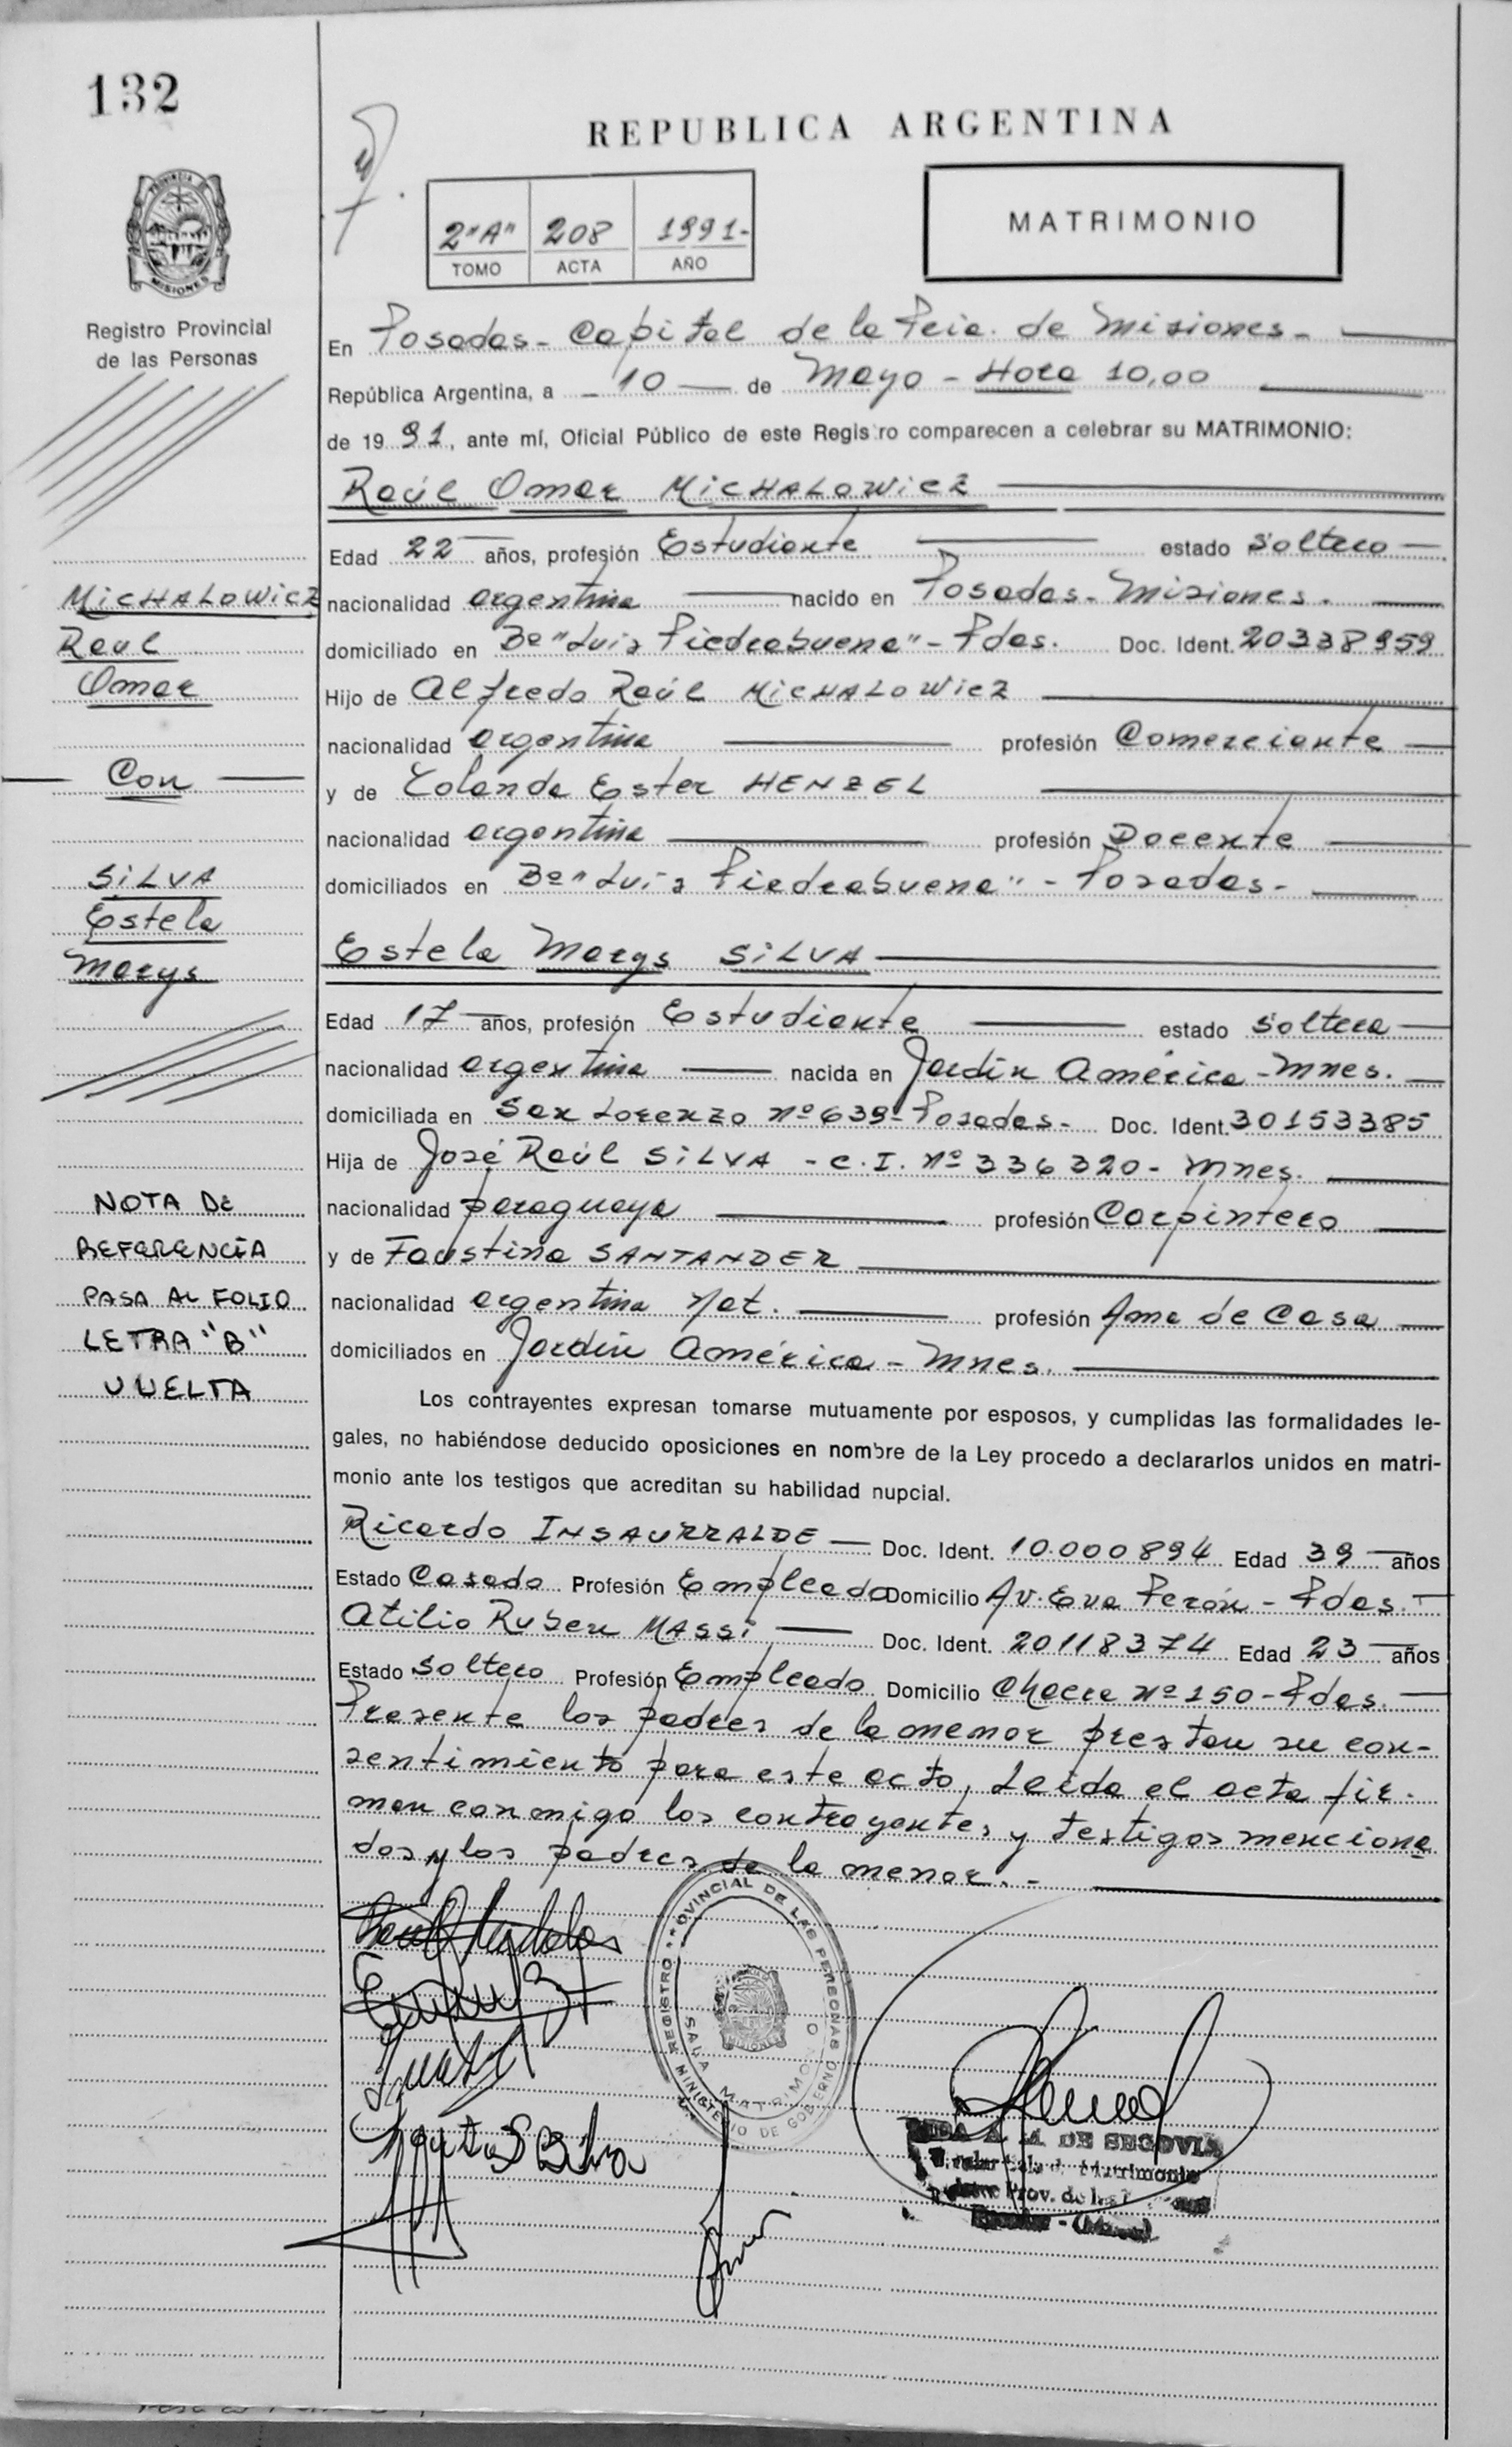 132
REPUBLICA ARGENTINA
PROVINCIA DE
MISIONES
Registro Provincial
de las Personas
2"A" 208 1991-
TOMO ACTA AÑO
MATRIMONIO
En Posadas - Capital de la Pcia. de Misiones -
República Argentina, a 10 de Mayo - Hora 10,00
de 1991, ante mí, Oficial Público de este Registro comparecen a celebrar su MATRIMONIO:
Raúl Omar MICHALOWICZ
Edad 22 años, profesión Estudiante estado Soltero
nacionalidad argentina nacido en Posadas - Misiones.
domiciliado en Bº "Luis Piedrabuena" - Pdas. Doc. Ident. 20338959
Hijo de Alfredo Raúl MICHALOWICZ
nacionalidad argentina profesión Comerciante
y de Yolanda Ester HENZEL
nacionalidad argentina profesión Docente
domiciliados en Bº "Luis Piedrabuena" - Posadas -
Estela Marys SILVA
Edad 17 años, profesión Estudiante estado Soltera
nacionalidad argentina nacida en Jardín América - Mnes.
domiciliada en San Lorenzo Nº 639 - Posadas - Doc. Ident. 30153385
Hija de José Raúl SILVA - C.I. Nº 336320 - Mnes.
nacionalidad paraguaya profesión Carpintero
y de Faustina SANTANDER
nacionalidad argentina Nat. profesión Ama de Casa
domiciliados en Jardín América - Mnes.
Los contrayentes expresan tomarse mutuamente por esposos, y cumplidas las formalidades le-
gales, no habiéndose deducido oposiciones en nombre de la Ley procedo a declararlos unidos en matri-
monio ante los testigos que acreditan su habilidad nupcial.
Ricardo INSAURRALDE Doc. Ident. 10.000894 Edad 39 años
Estado Casado Profesión Empleado Domicilio Av. Eva Perón - Pdas.
Atilio Ruben MASSI Doc. Ident. 20118374 Edad 23 años
Estado Soltero Profesión Empleado Domicilio Chacra Nº 150 - Pdas.
Presente los padres de la menor prestan su con-
sentimiento para este acto, Leída el acta fir-
man conmigo los contrayentes y testigos menciona
dos y los padres de la menor. -
MICHALOWICZ
Raul
Omar
Con
SILVA
Estela
Marys
NOTA DE
REFERENCIA
PASA AL FOLIO
LETRA "B"
VUELTA
REGISTRO PROVINCIAL DE LAS PERSONAS
MINISTERIO DE GOBIERNO
SALA MATRIMONIO
MISIONES
DE SEGOVIA
Matrimonio
Prov. de las